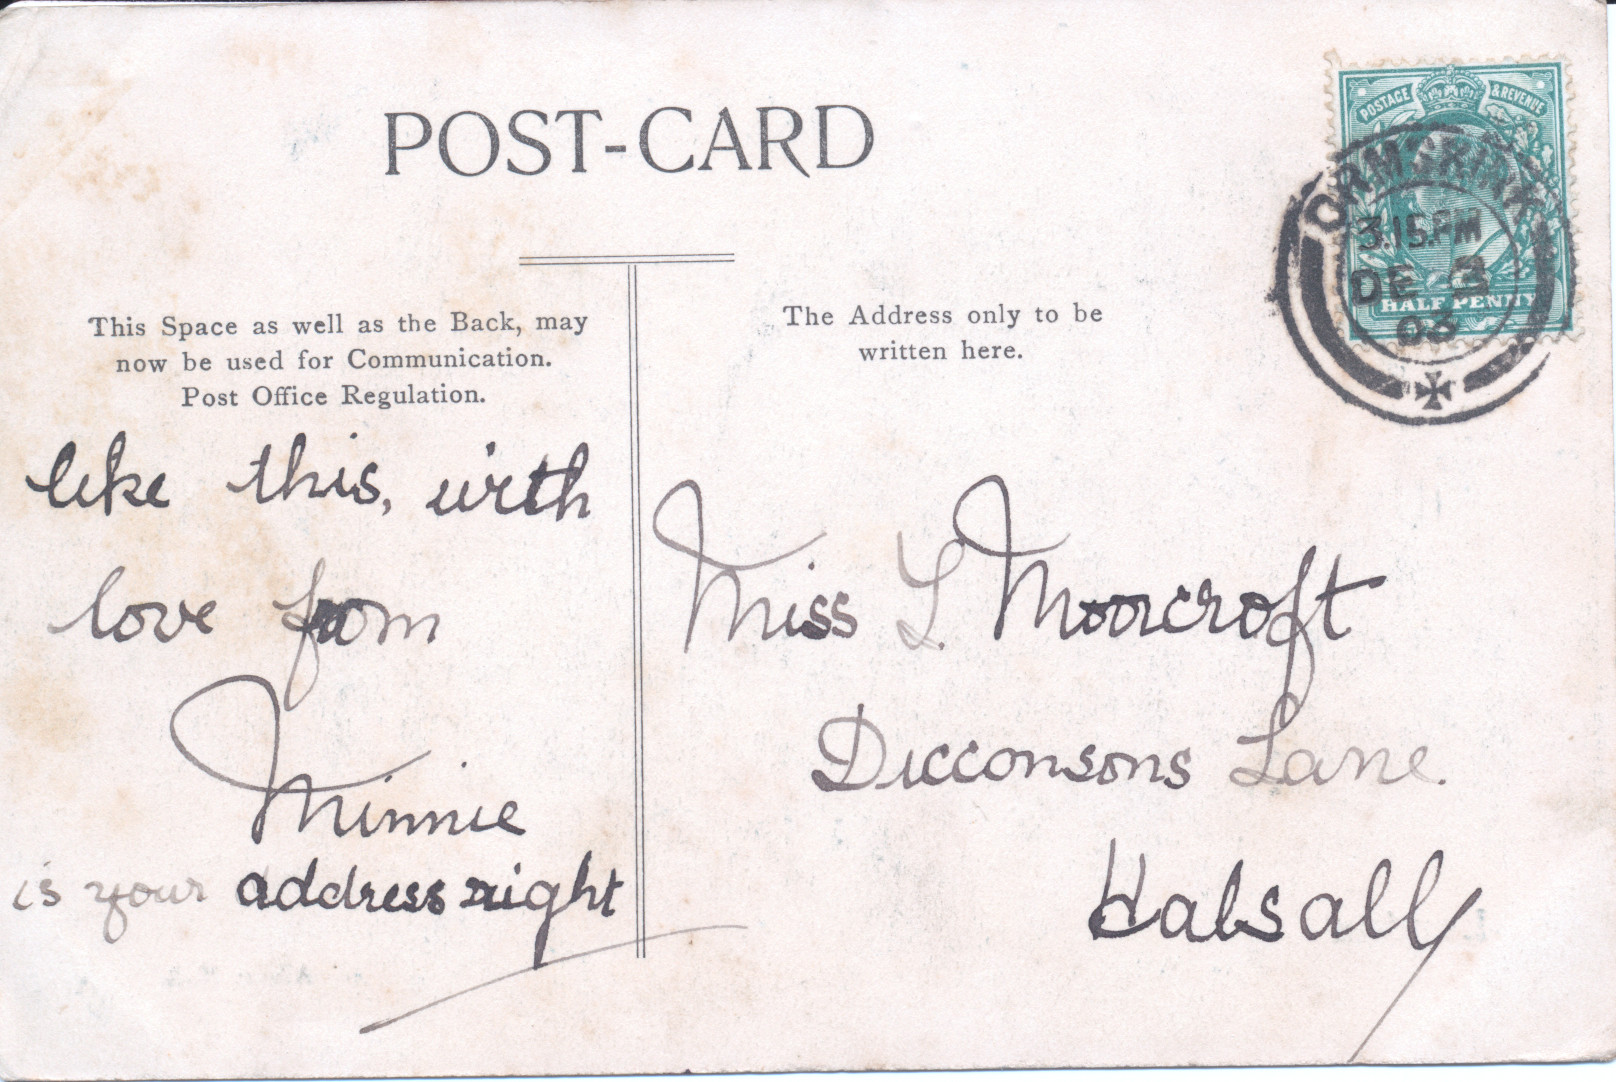 POST-CARD
POSTAGE & REVENUE
ORMSKIRK
3.15.PM
DE 3
03
HALF PENNY
This Space as well as the Back, may
now be used for Communication.
Post Office Regulation.
The Address only to be
written here.
like this, with
love from
Minnie
is your address right
Miss L. Moorcroft
Dicconsons Lane.
Halsall